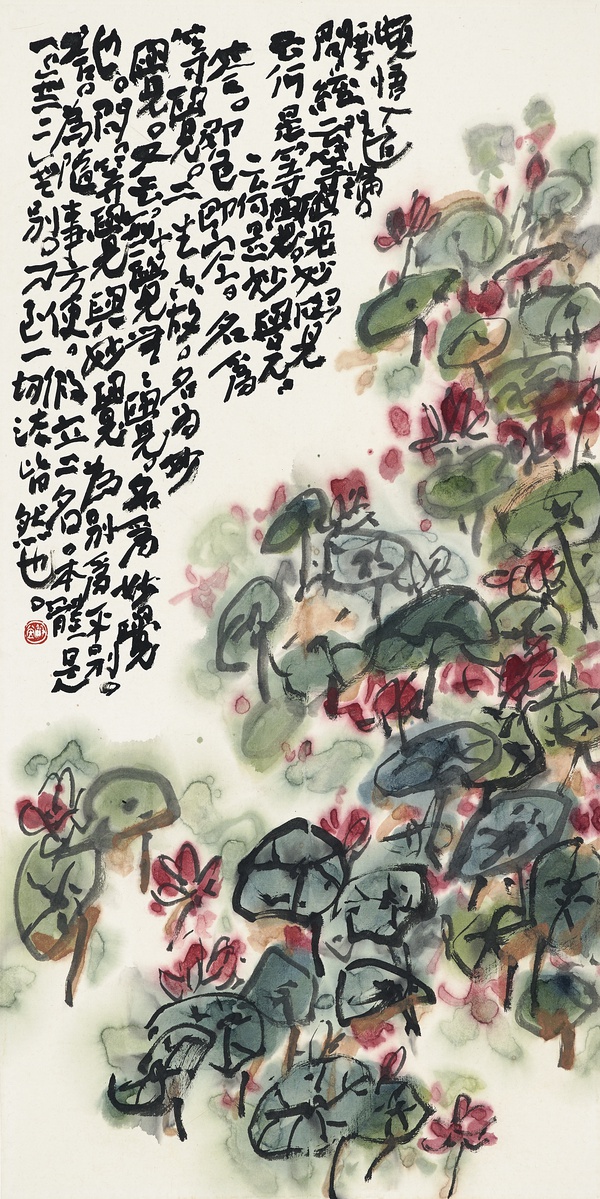 頓悟入道
要門論。
問。經云等覺妙覺
云何是等覺。
云何是妙覺。
答。即色即空。名為
等覺。二性空故。名為妙
覺。又云。無覺無無覺。名為妙覺
也。問。等覺與妙覺為別為不別。
答。為隨事方便。假立二名。本體是
一無二無別。乃至一切法皆然也。